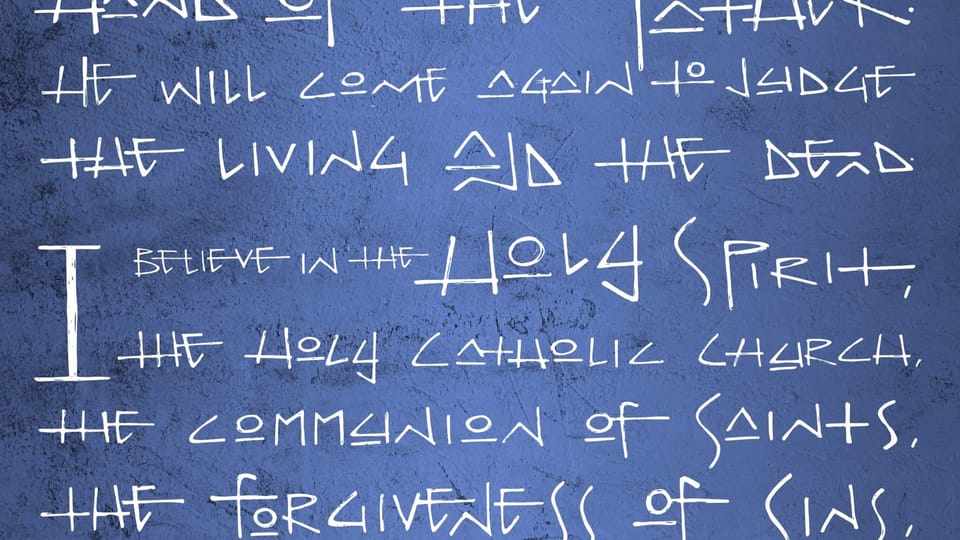 Hand of the Father.
He will come again to judge
the living and the dead.
I believe in the Holy Spirit,
the Holy Catholic Church,
the communion of Saints,
the forgiveness of sins,